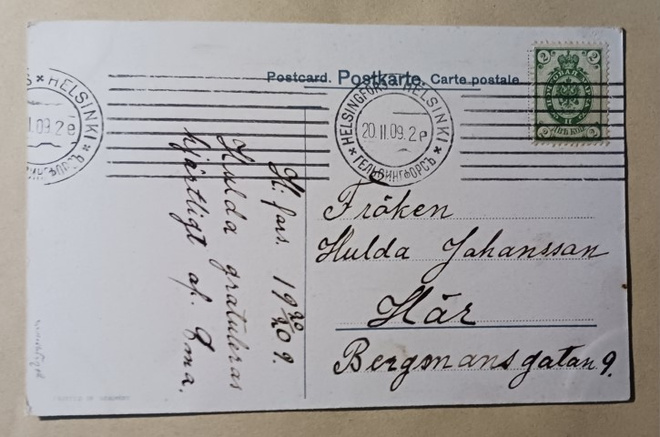 Postcard. Postkarte. Carte postale
HELSINGFORS * HELSINKI * ГЕЛЬСИНГФОРСЪ *
20.II.09.2e
HELSINKI
I.09.2e
2 2
Fröken
Hulda Johansson
Här
Bergmansgatan 9.
H.fors. 19 20/2 09.
Hulda gratuleras
hjärtligt af Ema.